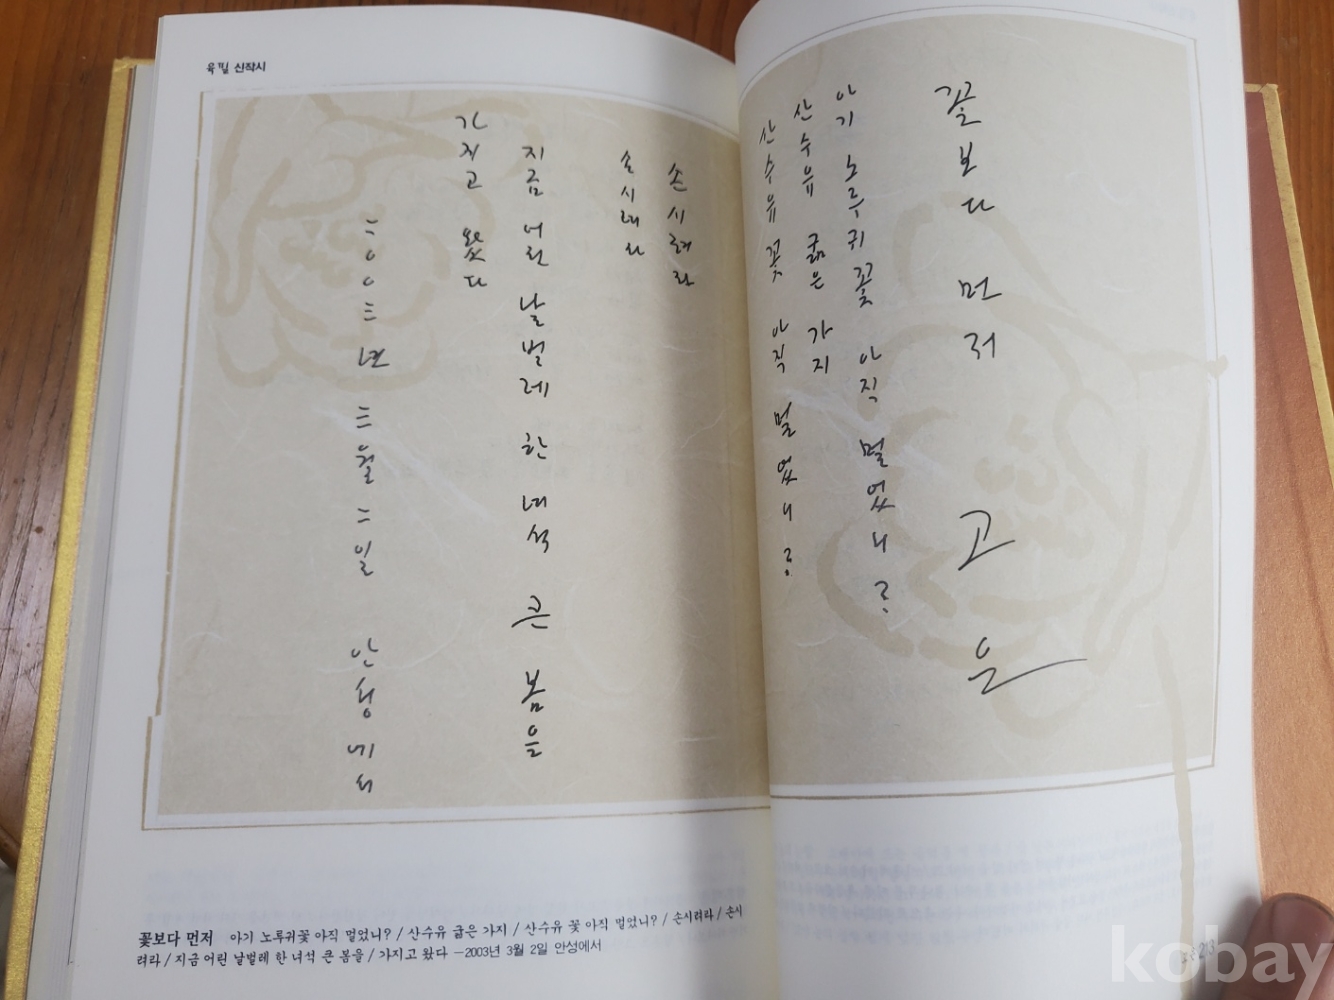 육필 신작시
꽃보다 먼저
고은
아기 노루귀꽃 아직 멀었니?
산수유 굵은 가지
산수유 꽃 아직 멀었니?
손시려라
손시려라
지금 어린 날벌레 한 녀석 큰 봄을
가지고 왔다
二〇〇三년 三월 二일 안성에서
꽃보다 먼저 아기 노루귀꽃 아직 멀었니? / 산수유 굵은 가지 / 산수유 꽃 아직 멀었니? / 손시려라 / 손시
려라 / 지금 어린 날벌레 한 녀석 큰 봄을 / 가지고 왔다 —2003년 3월 2일 안성에서
kobay